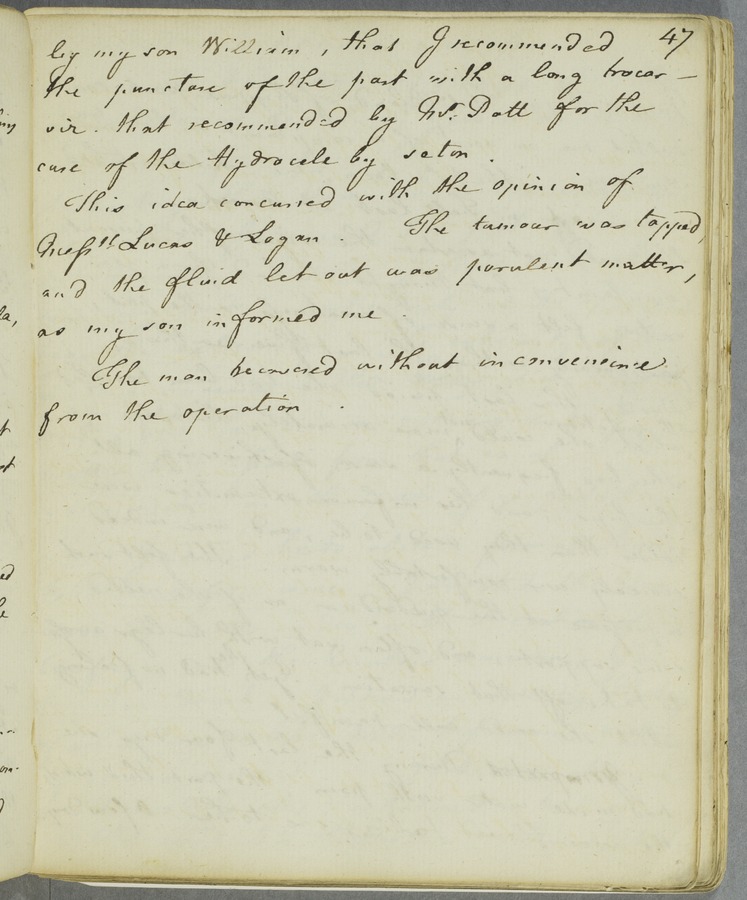 47
by my son William, that I recommended
the puncture of the part with a long trocar –
viz. that recommended by Mr. Pott for the
cure of the Hydrocele by seton.
This idea concurred with the opinion of
Messrs Lucas & Logan. The tumour was tapped,
and the fluid let out was purulent matter,
as my son informed me.
The man recovered without inconvenience
from the operation.